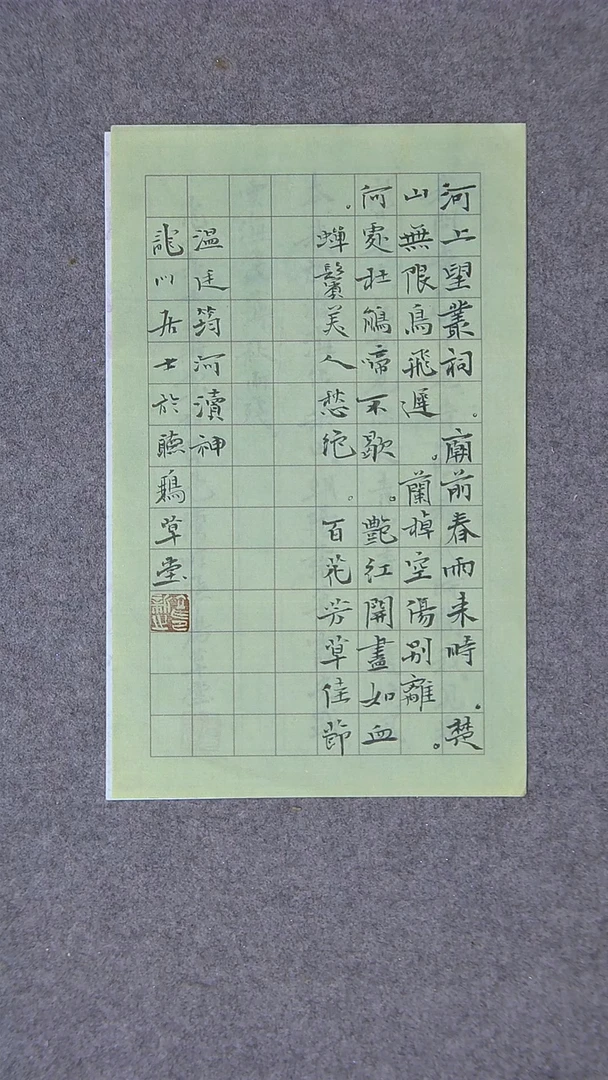 河上望叢祠。廟前春雨来時。楚
山無限鳥飛遲。蘭棹空傷別離。
何處杜鵑啼不歇。艷紅開盡如血
。蟬鬢美人愁絶。百花芳草佳節
温廷筠河瀆神
龍川居士於聽鵝草堂